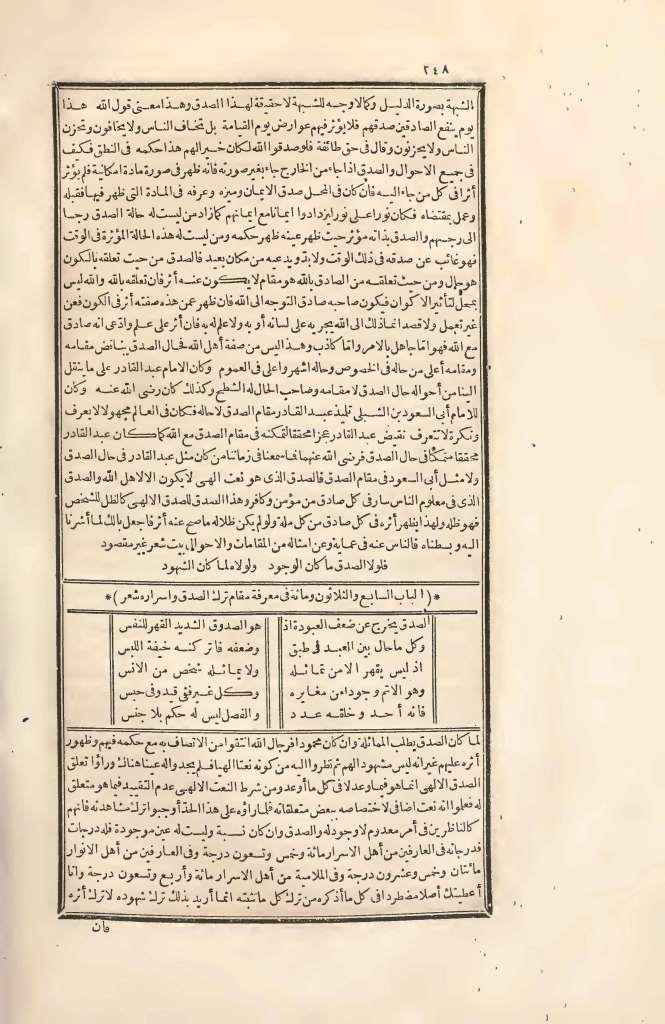 ٢٤٨
الشبهة بصورة الدليل وكالا وجه للشبهة لا حقيقة لهذا الصدق وهذا معنى قول الله هذا
يوم ينفع الصادقين صدقهم فلا يؤثر فيهم عوارض يوم القيامة بل تخاف الناس ولا يخافون وتحزن
الناس ولا يحزنون وقال فى حق طائفة فلو صدقوا الله لكان خيرا لهم هذا حكمه فى النطق فكيف
فى جميع الاحوال والصدق اذا جاء من الخارج جاء بغير صورته فانه ظهر فى صورة مادة امكانية فلم يؤثر
أثرا فى كل من جاء اليه فان كان فى المحل صدق الايمان وميزه وعرفه فى المادة التى ظهر فيها فقبله
وعمل بمقتضاه فكان نورا على نور ايزدادوا ايمانا مع ايمانهم كما زاد من ليست له حالة الصدق رجسا
الى رجسهم والصدق بذاته مؤثر حيث ظهر عينه ظهر حكمه ومن ليست له هذه الحالة المؤثرة فى الوقت
فهو غائب عن صدقه فى ذلك الوقت ولا بد ويدعيه من مكان بعيد فالصدق من حيث تعلقه بالكون
هو حال ومن حيث تعلقه من الصادق بالله هو مقام لا يكون عنه أثر فان تعلقه بالله والله ليس
بمحل لتأثير الاكوان فيكون صاحبه صادق التوجه الى الله فان ظهر عن هذه صفته أثر فى الكون فعن
غير تعمل ولا قصد انما ذلك الى الله يجريه على لسانه أو يده ولا علم له به فان أثر على علم وادعى انه صادق
مع الله فهو اما جاهل بالامر واما كاذب وهذا ليس من صفة أهل الله فحال الصدق يناقض مقامه
ومقامه أعلى من حاله فى الخصوص وحاله اشهر واعلى فى العموم وكان الامام عبد القادر على ما ينقل
الينا من أحواله حال الصدق لا مقامه وصاحب الحال له الشطح وكذلك كان رضى الله عنه وكان
للامام أبى السعود بن الشبلى تلميذ عبد القادر مقام الصدق لا حاله فكان فى العالم مجهولا لا يعرف
ونكرة لا تتعرف نقيض عبد القادر عجزا محققا لتمكنه فى مقام الصدق مع الله كما كان عبد القادر
محققا متمكنا فى حال الصدق فرضى الله عنهما فما سمعنا فى زماننا من كان مثل عبد القادر فى حال الصدق
ولا مثل أبى السعود فى مقام الصدق فالصدق الذى هو نعت الهى لا يكون الا لاهل الله والصدق
الذى فى معلوم الناس سار فى كل صادق من مؤمن وكافر وهذا الصدق للصدق الالهى كالظل للشخص
فهو ظله ولهذا يظهر أثره فى كل صادق من كل ملة ولو لم يكن ظلا له ما صح عنه أثر فاجعل بالك لما أشرنا
اليه وبسطناه فالناس عنه فى عماية وعن امثاله من المقامات والاحوال بيت شعر غير مقصود
فلولا الصدق ما كان الوجود ولولاه لما كان الشهود
*( الباب السابع والثلاثون ومائة فى معرفة مقام ترك الصدق واسراره شعر )*
الصدق يخرج عن ضعف العبودة اذ هو الصدوق الشديد القهر للنفس
وكل ما حال بين العبد فى طبق وضعفه فاتر كنه خيفة اللبس
اذ ليس يقهر الا من تماثله ولا يماثله شخص من الانس
وهو الاتم وجودا من مغايره وكل غير ففى قيد وفى حبس
فانه أحد وخلقه عدد والفصل ليس له حكم بلا جنس
لما كان الصدق يطلب المماثلة وان كان محمودا فرجال الله انتقوا من الاتصاف به مع حكمه فيهم وظهور
أثره عليهم غير انه ليس مشهودا لهم ثم نظروا اليه من كونه نعتا الهيا فلم يجدوا له عينا هناك ورأوا تعلق
الصدق الالهى انما هو فيما وعد لا فى كل ما أوعد ومن شرط النعت الالهى عدم التقييد فيما هو متعلق
له فعلموا انه نعت اضافى لاختصاصه ببعض متعلقاته فلما رأوه على هذا الحد أوجبوا ترك مشاهدته فانهم
كالناظرين فى أمر معدوم لا وجود له والصدق وان كان نسبة وليست له عين موجودة فله درجات
فدرجاته فى العارفين من أهل الاسرار مائة وخمس وتسعون درجة وفى العارفين من أهل الانوار
مائتان وخمس وعشرون درجة وفى الملامية من أهل الاسرار مائة وأربع وتسعون درجة وانا
أعطيتك أصلا مطردا فى كل ما أذكره من ترك كل ما نثبته انما أريد بذلك ترك شهوده لا ترك أثره
فان